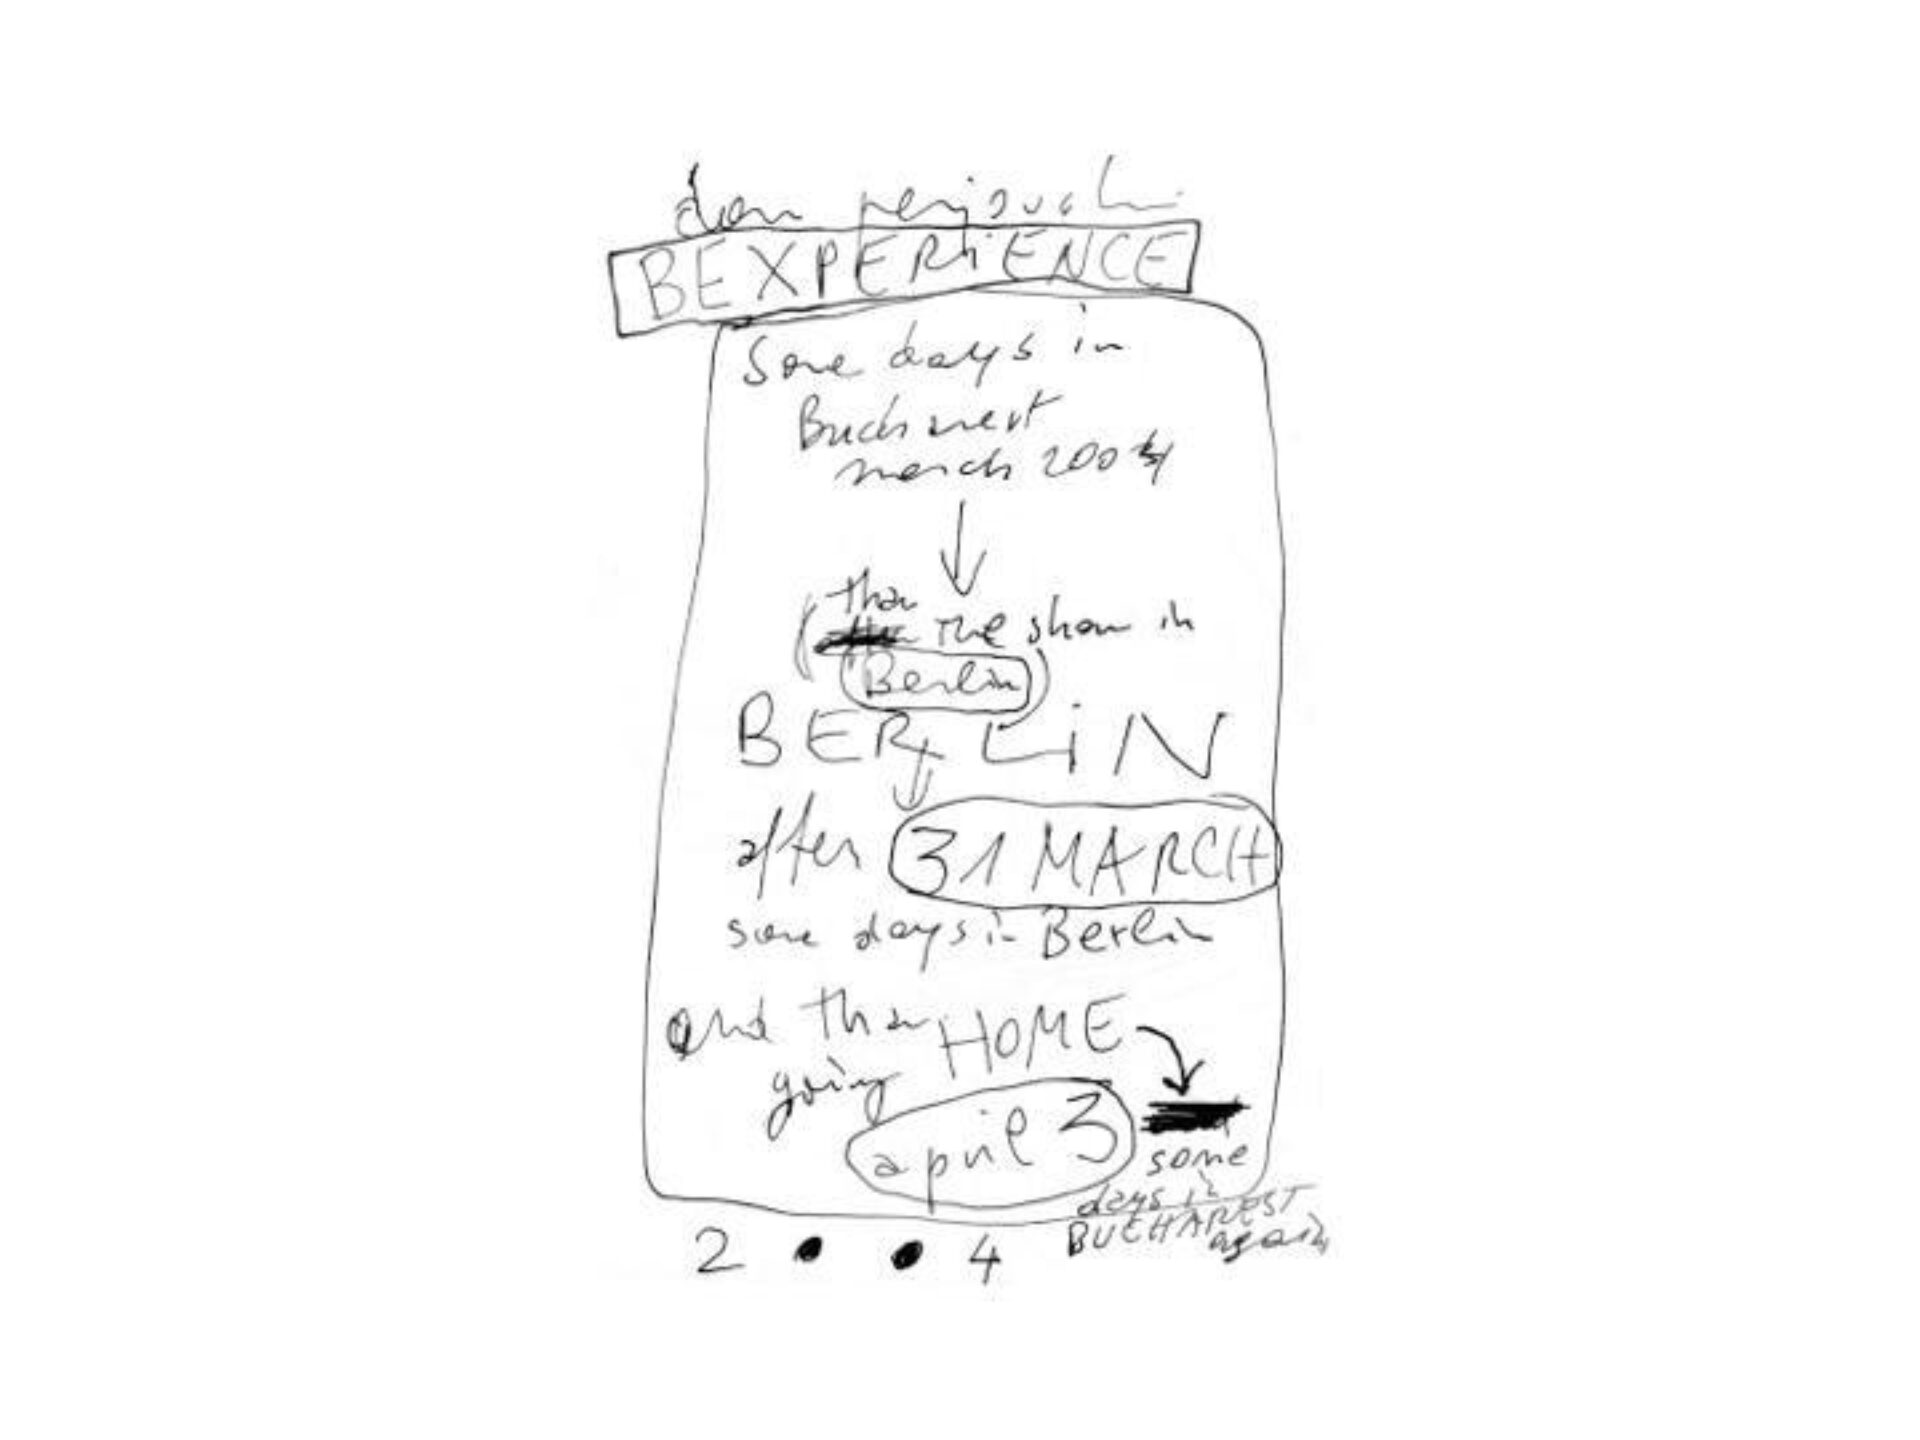 dan perjovschi
BEXPERiENCE
Some days in
Bucharest
march 2004
than
the show in
Berlin
BERLiN
after 31 MARCH
some days in Berlin
and than HOME
going
april 3
some
days in
BUCHAREST
again
2 • • 4